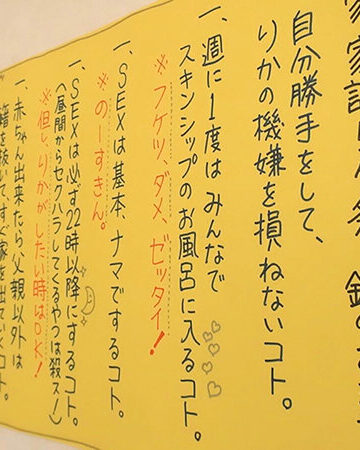 自分勝手をして、
りかの機嫌を損ねないコト。
一、週に1度はみんなで
スキンシップのお風呂に入るコト。
※フケツ、ダメ、ゼッタイ!
一、SEXは基本、ナマでするコト。
※のーすきん。
一、SEXは必ず22時以降にするコト。
(昼間からセクハラしてくるやつは殺ス!)
※但し、りかがしたい時はOK!
一、赤ちゃん出来たら父親以外は
籍を抜いてすぐ家を出ていくコト。